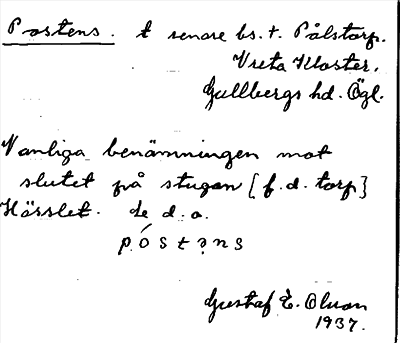 Postens. t senare bs. t. Pålstorp.
Vreta Kloster.
Gullbergs hd. Ögl.
Vanliga benämningen mot
slutet på stugan [f. d. torp]
Hässlet. Se d. o.
póstəns
Gustaf E. Olson
1937.